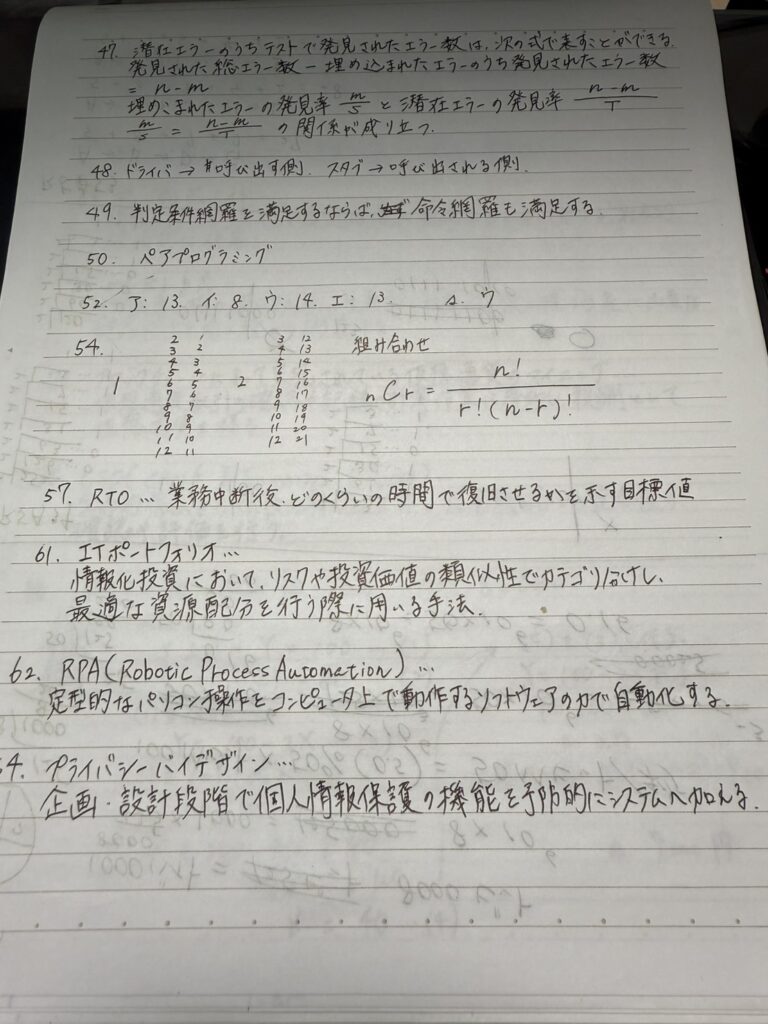 47. 潜在エラーのうちテストで発見されたエラー数は、次の式で表すことができる.
発見された総エラー数 − 埋め込まれたエラーのうち発見されたエラー数
= n−m
埋めこまれたエラーの発見率 m/S と潜在エラーの発見率 n−m/T
m/S = n−m/T の関係が成り立つ.
48. ドライバ → 呼び出す側. スタブ → 呼び出される側.
49. 判定条件網羅を満足するならば、命令網羅も満足する.
50. ペアプログラミング
52. ア: 13. イ: 8. ウ: 14. エ: 13. A. ウ
54. 組み合わせ
1
2 1
3 2
4 3
5 4
6 5
7 6
8 7
9 8
10 9
11 10
12 11
2
3 12
4 13
5 14
6 15
7 16
8 17
9 18
10 19
11 20
12 21
nCr = n! / r!(n−r)!
57. RTO … 業務中断後、どのくらいの時間で復旧させるかを示す目標値
61. ITポートフォリオ…
情報化投資において、リスクや投資価値の類似性でカテゴリ分けし、
最適な資源配分を行う際に用いる手法.
62. RPA(Robotic Process Automation) …
定型的なパソコン操作をコンピュータ上で動作するソフトウェアの力で自動化する.
4. プライバシーバイデザイン…
企画・設計段階で個人情報保護の機能を予防的にシステムへ加える.